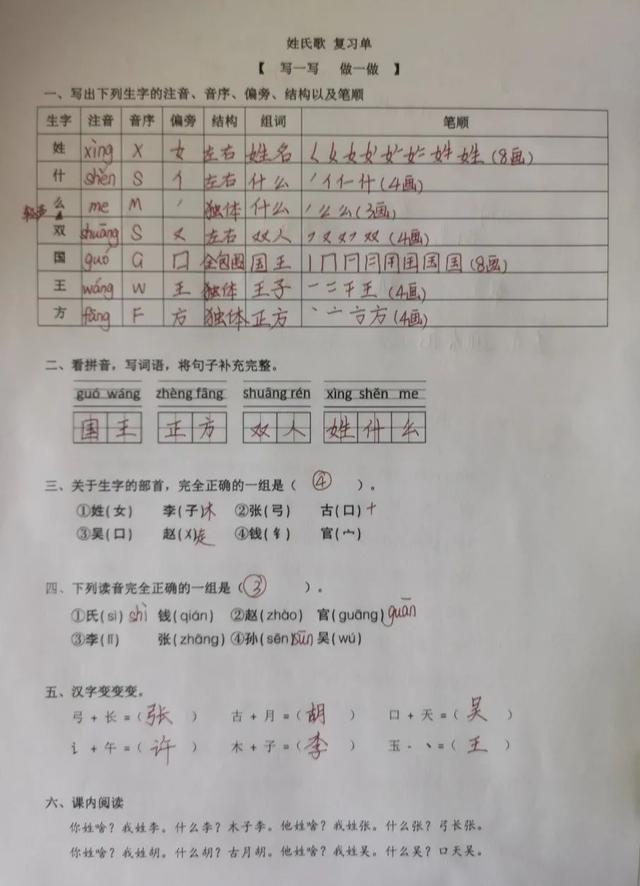 姓氏歌 复习单
【 写一写 做一做 】
一、写出下列生字的注音、音序、偏旁、结构以及笔顺
生字 注音 音序 偏旁 结构 组词 笔顺
姓 xìng X 女 左右 姓名 (8画)
什 shén S 亻 左右 什么 (4画)
轻声 么 me M 丿 独体 什么 (3画)
双 shuāng S 又 左右 双人 (4画)
国 guó G 囗 全包围 国王 (8画)
王 wáng W 王 独体 王子 (4画)
方 fāng F 方 独体 正方 (4画)
二、看拼音，写词语，将句子补充完整。
guó wáng zhèng fāng shuāng rén xìng shén me
国王 正方 双人 姓什么
三、关于生字的部首，完全正确的一组是（ ④ ）。
①姓(女) 李(子)木 ②张(弓) 古(口)十
③吴(口) 赵(乂)走 ④钱(钅) 官(宀)
四、下列读音完全正确的一组是（ ③ ）。
①氏(sì)shì 钱(qián) ②赵(zhào) 官(guāng)guān
③李(lǐ) 张(zhāng) ④孙(sēn)sūn 吴(wú)
五、汉字变变变。
弓 + 长 =（ 张 ） 古 + 月 =（ 胡 ） 口 + 天 =（ 吴 ）
讠 + 午 =（ 许 ） 木 + 子 =（ 李 ） 玉 - 丶=（ 王 ）
六、课内阅读
你姓啥？我姓李。什么李？木子李。他姓啥？我姓张。什么张？弓长张。
你姓啥？我姓胡。什么胡？古月胡。他姓啥？我姓吴。什么吴？口天吴。